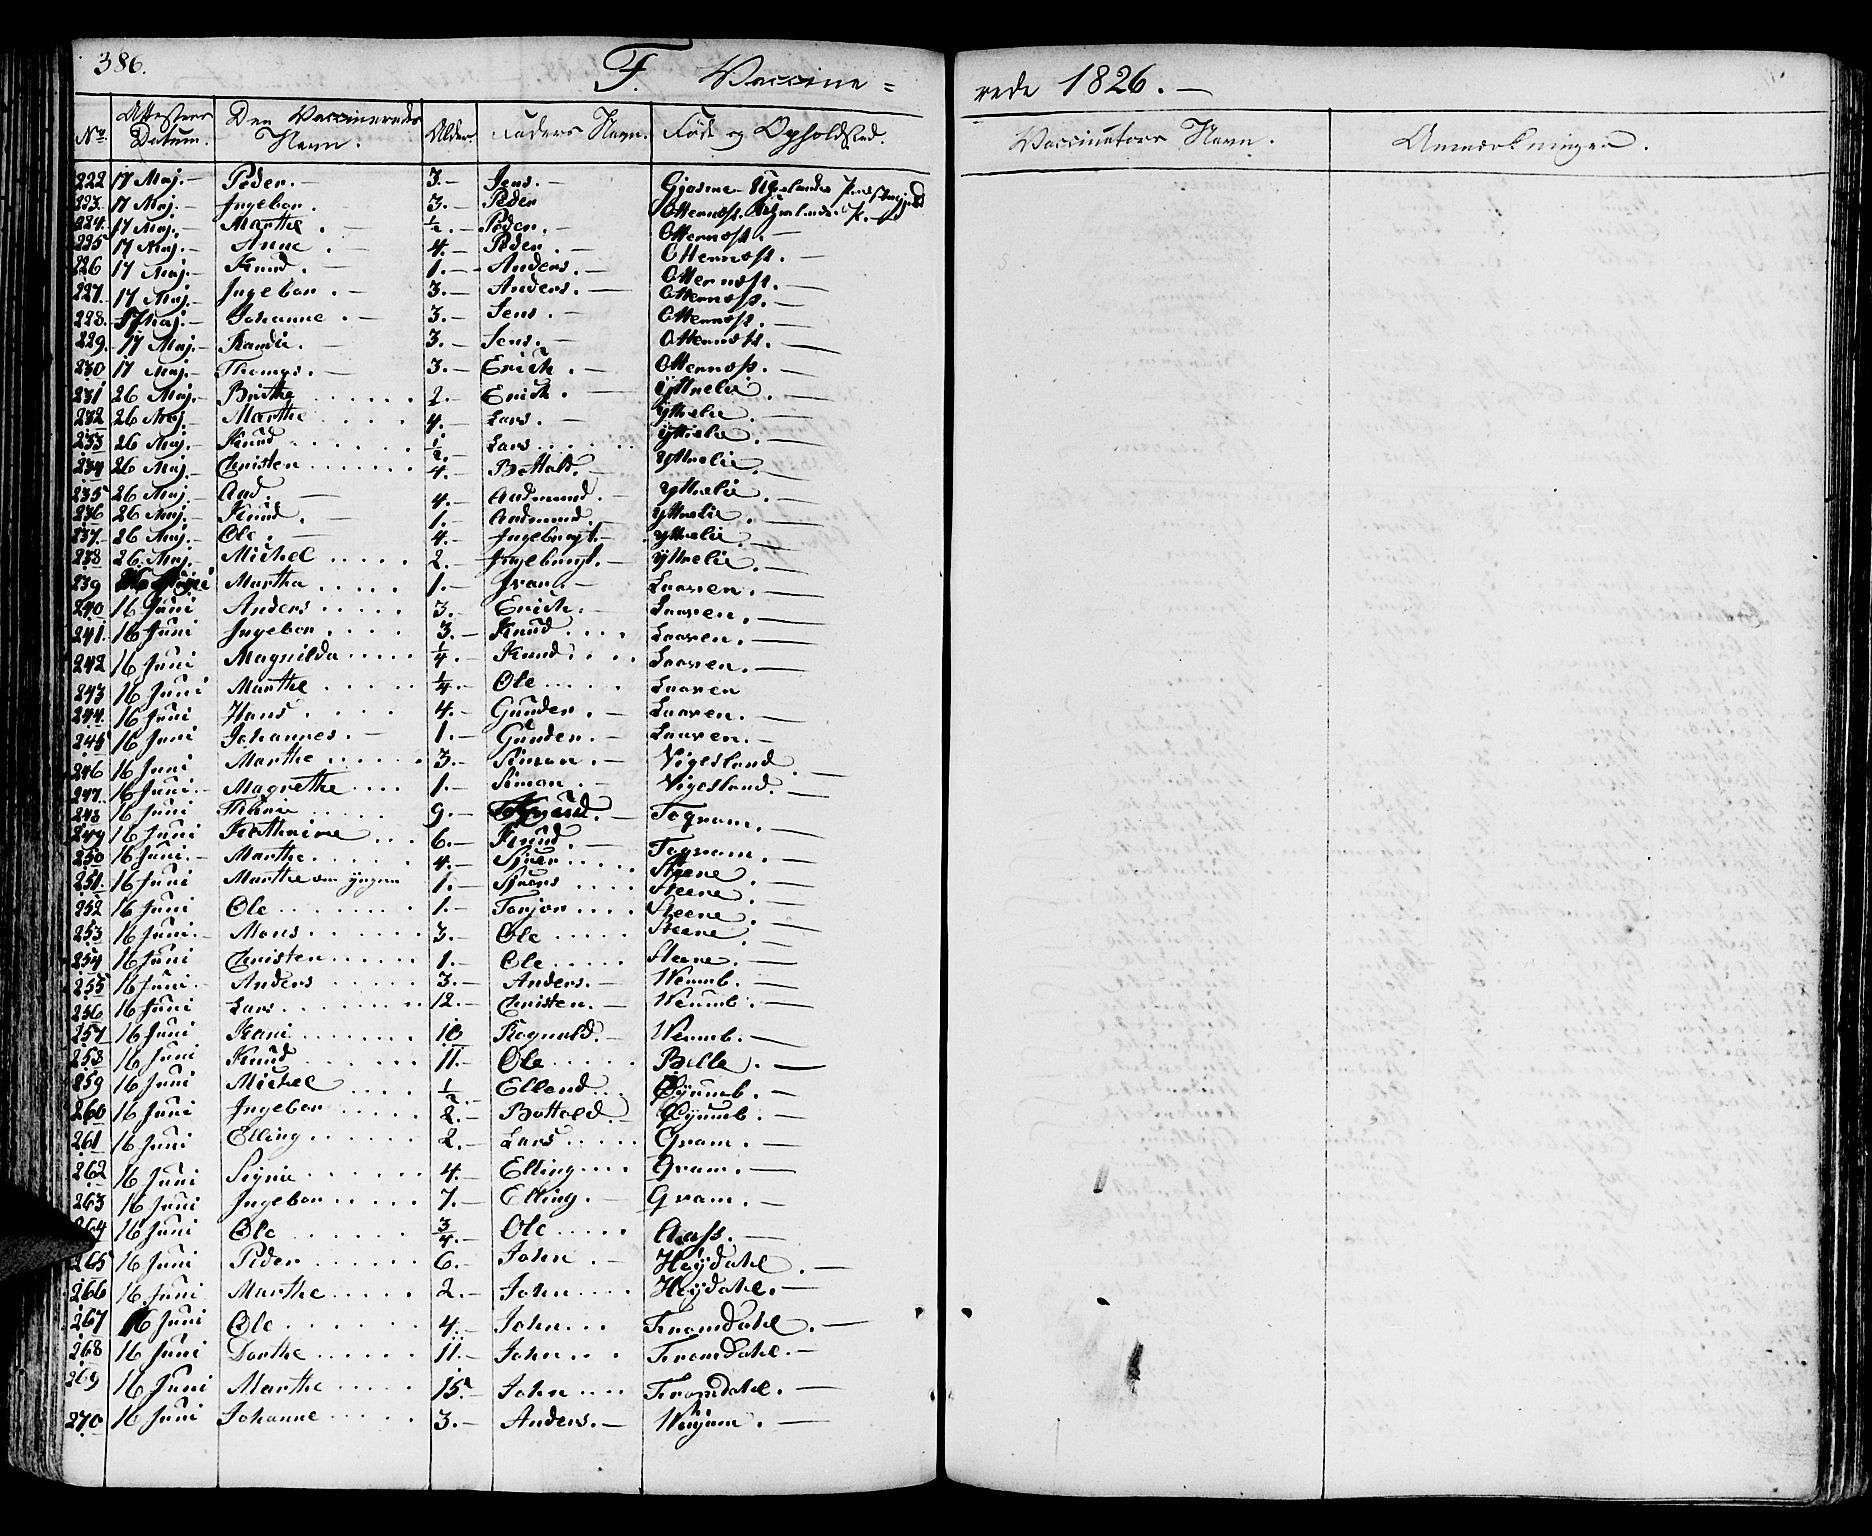 386.
F. Vaccine=
rede 1826.
No. Attestens Datum. Den Vaccineredes Navn. Alder. Faders Navn. Føde og Opholdsted. Vaccinators Navn. Anmærkninger.
222 17 Maj. Peder. 3. Jens. Gjosme
223. 17 Maj. Ingebor. 3. Peder Otternæss.
224. 17 Maj. Marthe. ½. Peder. Otternæss.
225 17 Maj. Anne. 4. Peder. Otternæss.
226 17 Maj. Knud. 1. Anders. Otternæss.
227. 17 Maj. Ingebor. 3. Anders. Otternæss.
228. 17 Maj. Johanne. 3. Jens. Otternæss.
229. 17 Maj. Kandie. 3. Jens. Otternæss.
230 17 Maj. Thomas. 3. Erich. Otternæss.
231 26 Maj. Brithe 2. Erich. Ÿttrelie.
232 26 Maj Marthe 4. Lars. Ÿttrelie.
233 26 Maj. Knud ½. Lars Ÿttrelie.
234 26 Maj. Christen 4. Bottolf. Ÿttrelie.
235 26 Maj. And. 4. Andmund. Yttrelie.
236 26 Maj. Knud. 1. Andmund. Yttrelie.
237. 26 Maj. Ole. 4. Ingebrigt. Yttrelie.
238 26. Maj. Michel 2. Ingebrigt. Yttrelie.
239 Martha 1. Ivar. Laaven.
240 16 Juni Anders 3. Erich. Laaven.
241. 16 Juni Ingebor. 3. Knud Laaven.
242 16 Juni Magnilda ¼. Knud. Laaven.
243 16 Juni Marthe ¼. Ole Laaven
244. 16 Juni Hans 4. Gunder. Laaven.
245 16 Juni Johannes. 1. Gunder. Laaven.
246 16 Juni Marthe 3. Simon. Vigesland.
247. 16 Juni. Magrethe 1. Simon. Vigesland.
248 16 Juni 9. Togram.
249 16 Juni Kathrine 6. Knud. Togram.
250 16 Juni. Marthe. 4. Siver Steene.
251. 16 Juni Marthe den yngere 1. Sivers Steene.
252 16 Juni Ole 1. Torjer Steene.
253 16 Juni. Mons 3. Ole Steene.
254 16 Juni Christen 1. Ole Steene.
255 16 Juni. Anders 3. Anders. Wemmb.
256 16 Juni Lars 12. Christen. Wemmb.
257 16 Juni Kari 10 Rognald. Wemmb.
258 16 Juni Knud 11. Ole Bille.
259 16 Juni Michel ½. Elland Øÿumb.
260 16 Juni Ingebor 2. Bottold. Øÿumb.
261 16 Juni Elling 2. Lars Gram.
262 16 Juni Signie 4. Elling Gram.
263 16 Juni Ingebor 7. Elling. Gram.
264 16 Juni Ole ¾. Ole Aass.
265 16 Juni Peder 6. John. Heÿdahl.
266 16 Juni Marthe 2. John Heÿdahl.
267 16 Juni Ole 4. John Fromdahl.
268 16 Juni Dorthe 11. John Fromdahl.
269 16 Juni Marthe 15. John Fromdahl.
270 16 Juni Johanne 3. Anders. Wejum.